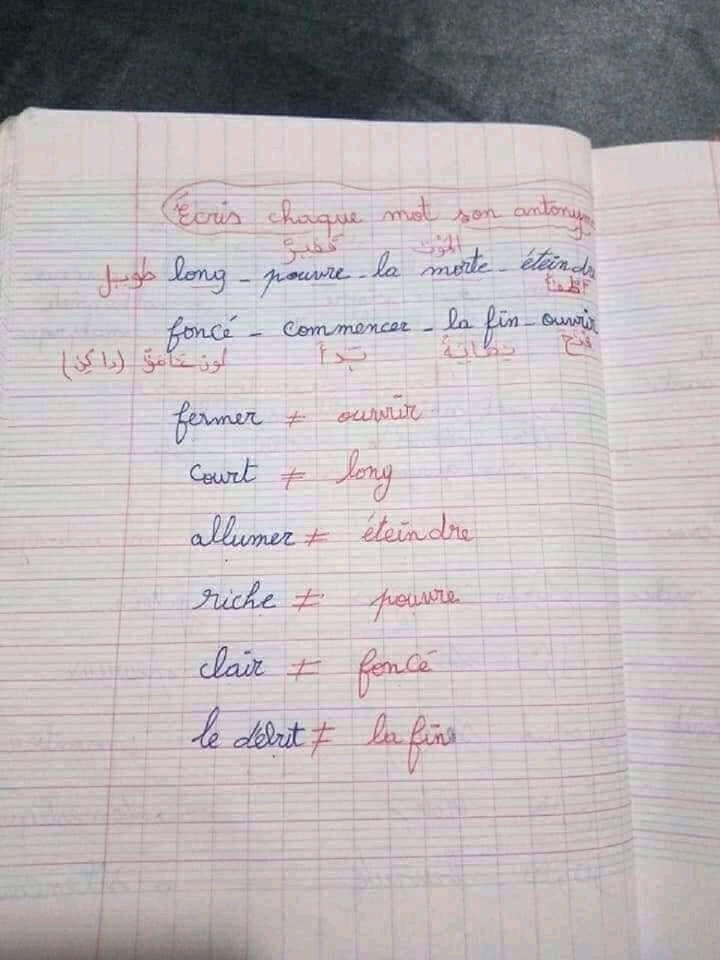 Écris chaque mot son antonyme
فقير الموت
طويل long - pouvre - la morte - éteindre
أطفأ
foncé - commencer - la fin - ouvrir
لون غامق (داكن) بَدَأَ نهاية فتح
fermer ≠ ouvrir
court ≠ long
allumer ≠ éteindre
riche ≠ pouvre
clair ≠ foncé
le début ≠ la fin